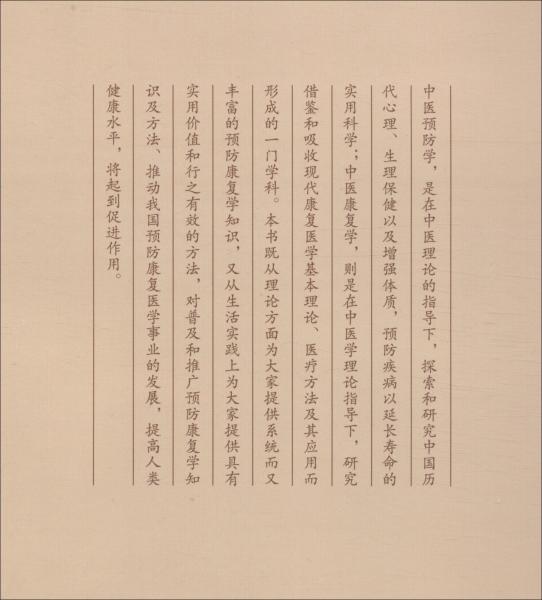 中医预防学，是在中医理论的指导下，探索和研究中国历
代心理、生理保健以及增强体质，预防疾病以延长寿命的
实用科学；中医康复学，则是在中医学理论指导下，研究
借鉴和吸收现代康复医学基本理论、医疗方法及其应用而
形成的一门学科。本书既从理论方面为大家提供系统而又
丰富的预防康复学知识，又从生活实践上为大家提供具有
实用价值和行之有效的方法，对普及和推广预防康复学知
识及方法、推动我国预防康复医学事业的发展，提高人类
健康水平，将起到促进作用。